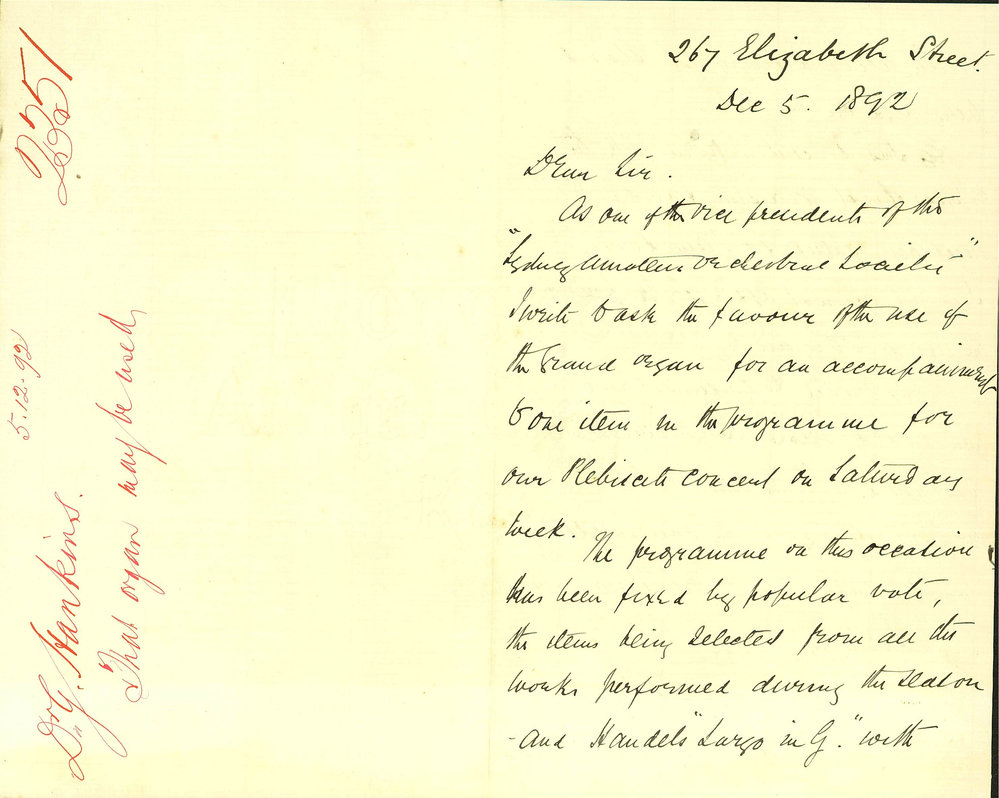 251
5.12.92
Dr G. Hankins.
That organ may be used,
267 Elizabeth Street.
Dec 5. 1892
Dear Sir.
As one of the vice presidents of the
"Sydney Amateur Orchestral Society"
I write to ask the favour of the use of
the Grand organ for an accompaniment
to one item in the programme for
our Plebiscite concert on Saturday
week.
The programme on this occation
has been fixed by popular vote,
the items being selected from all the
works performed during the season
- and Handel's "Largo in G." with